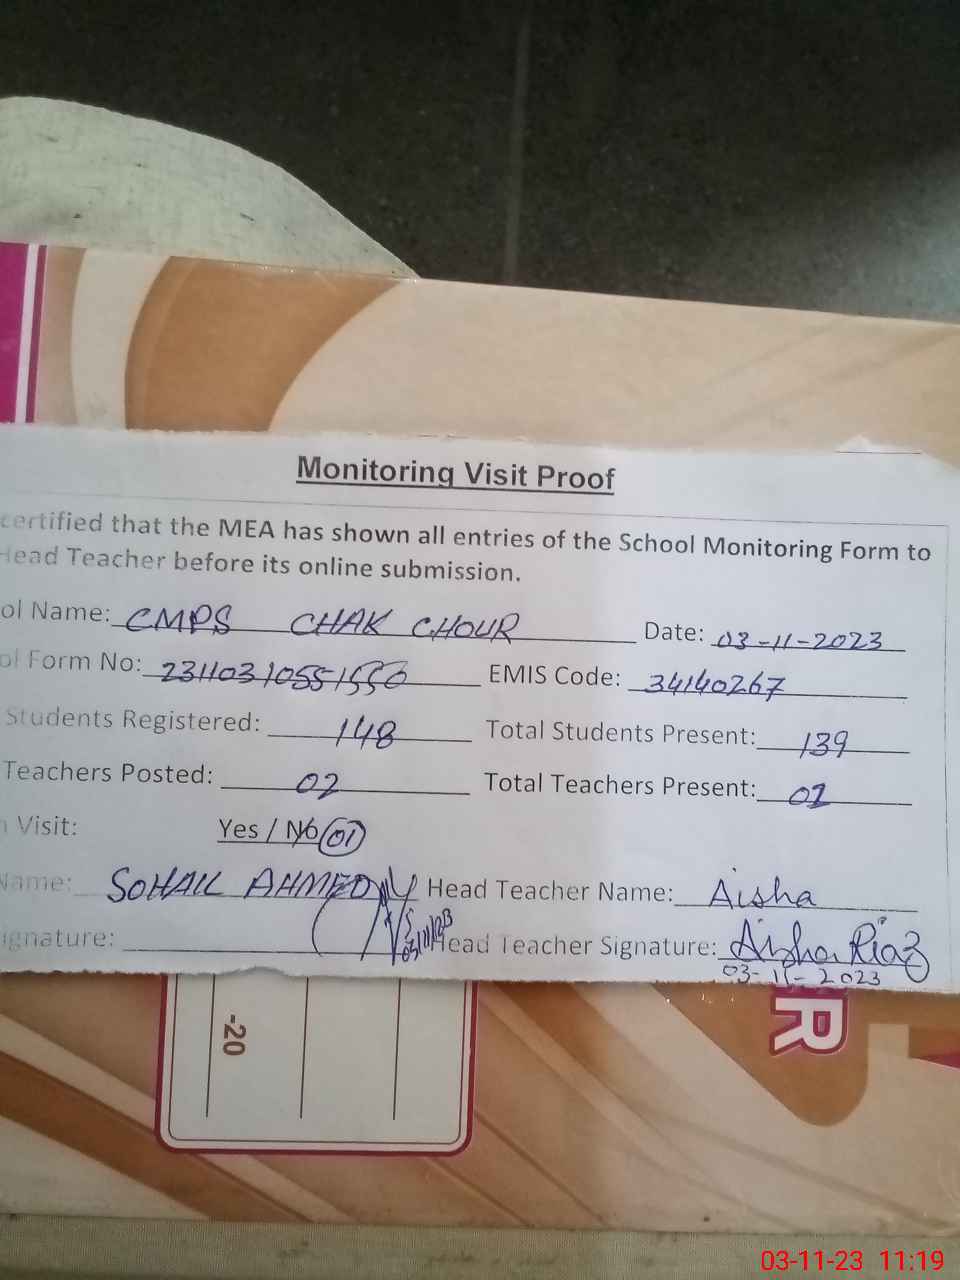 Monitoring Visit Proof
certified that the MEA has shown all entries of the School Monitoring Form to
Head Teacher before its online submission.
ol Name: CMPS CHAK CHOUR Date: 03-11-2023
ol Form No: 23110310551550 EMIS Code: 34140267
Students Registered: 148 Total Students Present: 139
Teachers Posted: 02 Total Teachers Present: 02
n Visit: Yes / No 01
Name: SOHAIL AHMED Head Teacher Name: Aisha
ignature: 03/11/23 Head Teacher Signature: Aisha Riaz
03-11-2023
-20
R
03-11-23 11:19